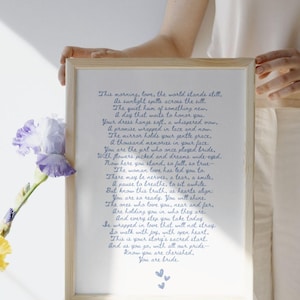 This morning, love, the world stands still,
As sunlight spills across the sill,
The quiet hum of something new,
A day that waits to honor you.
Your dress hangs soft, a whispered vow,
A promise wrapped in lace and now.
The mirror holds your gentle grace,
A thousand memories in your face.
You are the girl who once played bride,
With flowers picked and dreams wide-eyed.
Now here you stand, so full, so true—
The woman love has led you to.
There may be nerves, a tear, a smile,
A pause to breathe, to sit awhile.
But know this truth, as hearts align:
You are so ready. You will shine.
The ones who love you, near and far,
Are holding you in who they are.
And every step you take today
Is wrapped in love that will not stray.
So walk with joy, with open heart,
This is your story's sacred start.
And as you go, with all our pride—
Know you are cherished.
You are bride.